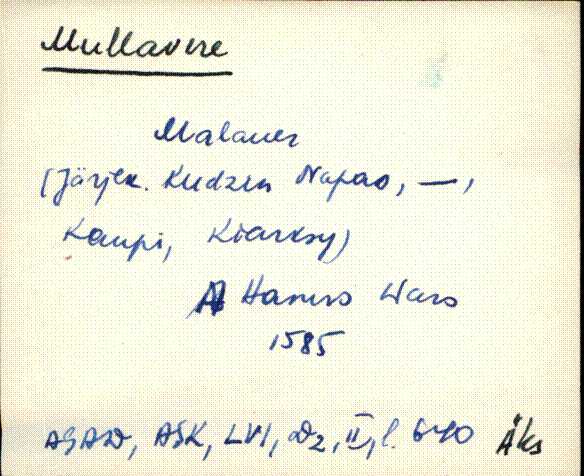 Mullavere
Malauer
(Järjek. Kudzen Napao, —,
Kaupi, Kiarksy)
A Hanuso Waro
1585
AGAD, ASK, LVI, D2, II, l. 640 Äks